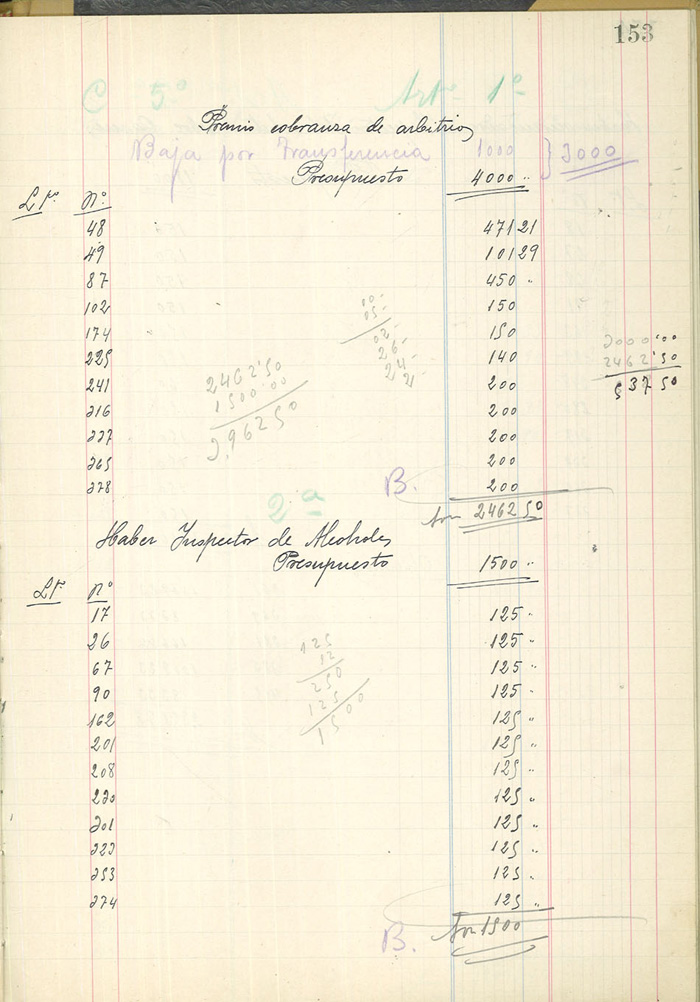 153
C 5º Artº 1º
Premio cobranza de arbitrios
Baja por Transferencia 1000 } 3000
Presupuesto 4000 "
Lº Nº
48 471 21
49 101 29
87 450 "
102 150
174 150
225 140
241 200
316 200
337 200
365 200
378 200
B. 2462 50
10-
05-
02-
26-
24-
21-
2462'50
1500'00
3,962 50
3000'00
2462'50
537 50
2ª
Haber Inspector de Alcoholes
Presupuesto 1500 "
Lº Nº
17 125 "
26 125 "
67 125 "
90 125 "
162 125 "
201 125 "
208 125 "
230 125 "
301 125 "
323 125 "
353 125 "
374 125 "
B. 1500
125
12
250
125
1500